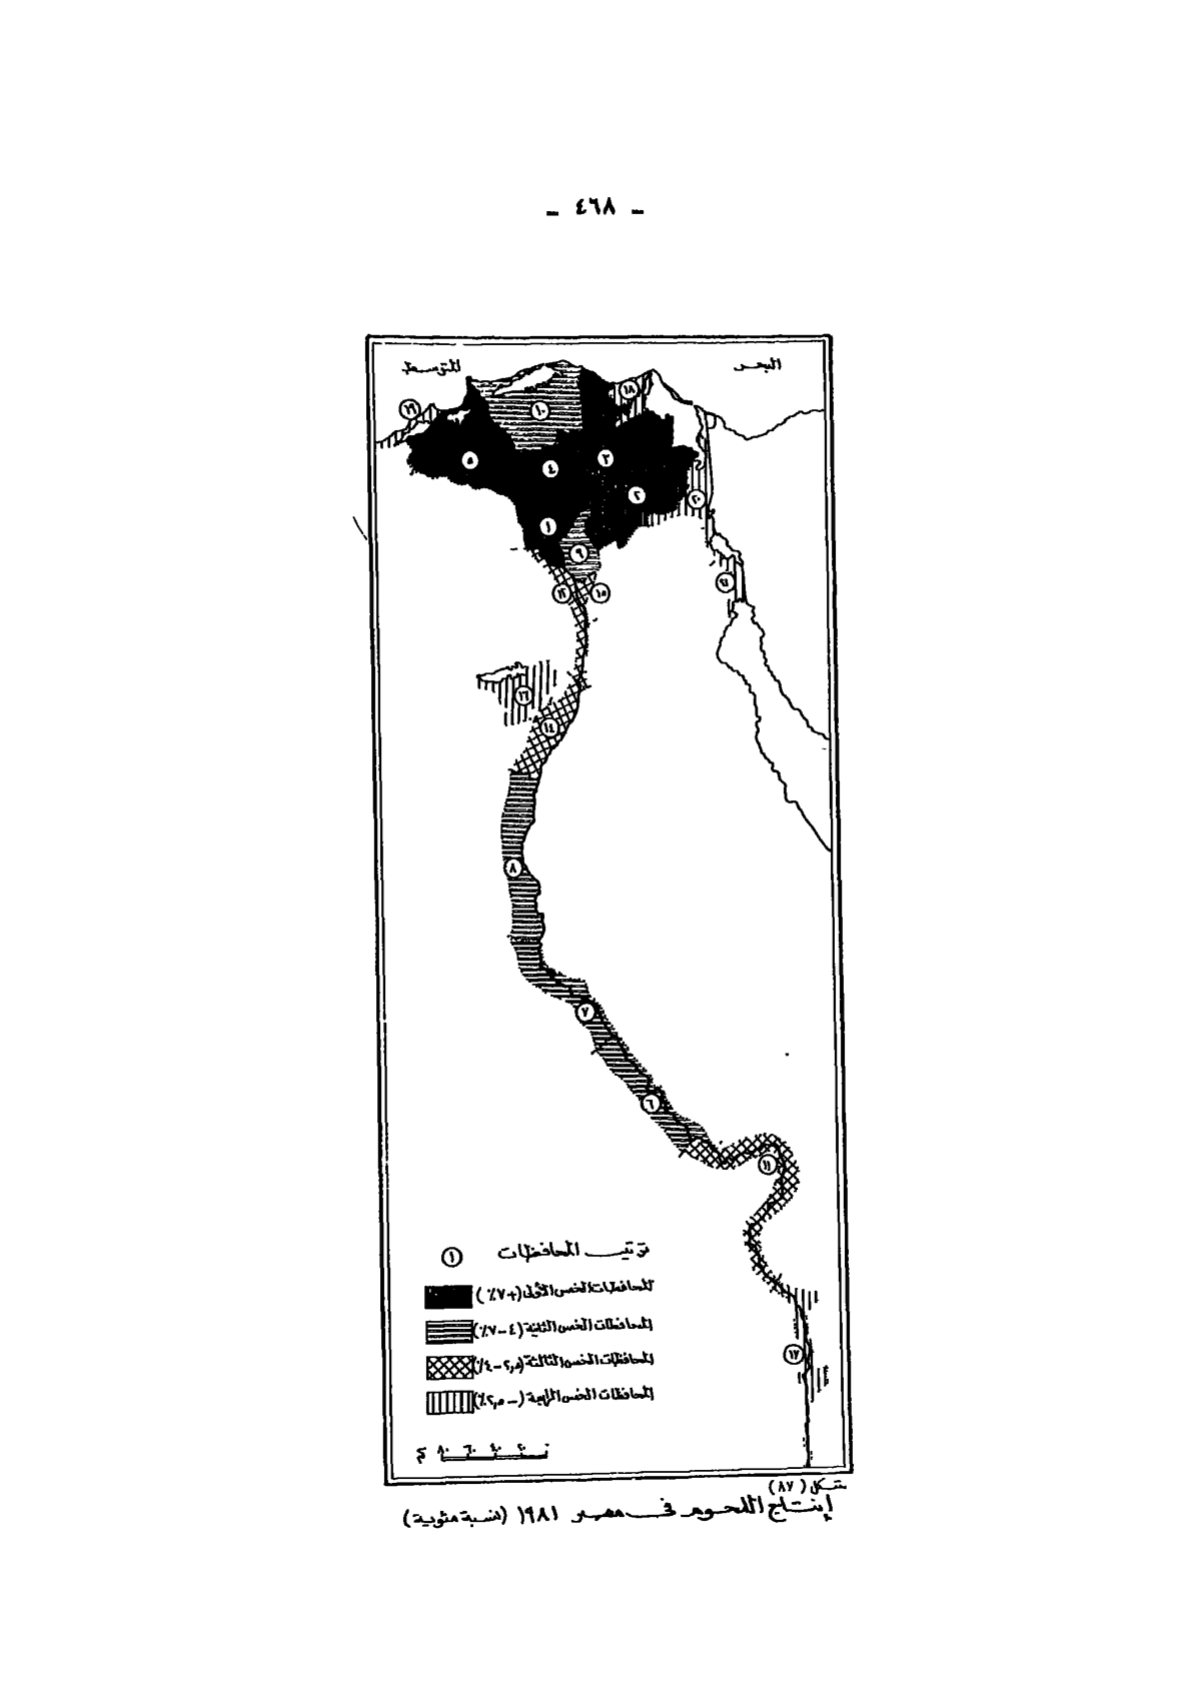 - ٤٦٨ -
البحر المتوسط
١٨
١٩
١٠
٥
٤
٣
٢
٢٠
١
٩
١٥
١٦
١٤
٨
٧
٦
١١
١٧
١ ترتيب المحافظات
المحافظات الخمس الأولى (+٧٪)
المحافظات الخمس الثانية (٤-٧٪)
المحافظات الخمس الثالثة (٢,٥-٤٪)
المحافظات الخمس الرابعة (-٢,٥٪)
٢٠ ٤٠ ٦٠ ٨٠ كم
شكل (٨٧)
إنتاج اللحوم فى مصر ١٩٨١ (نسبة مئوية)